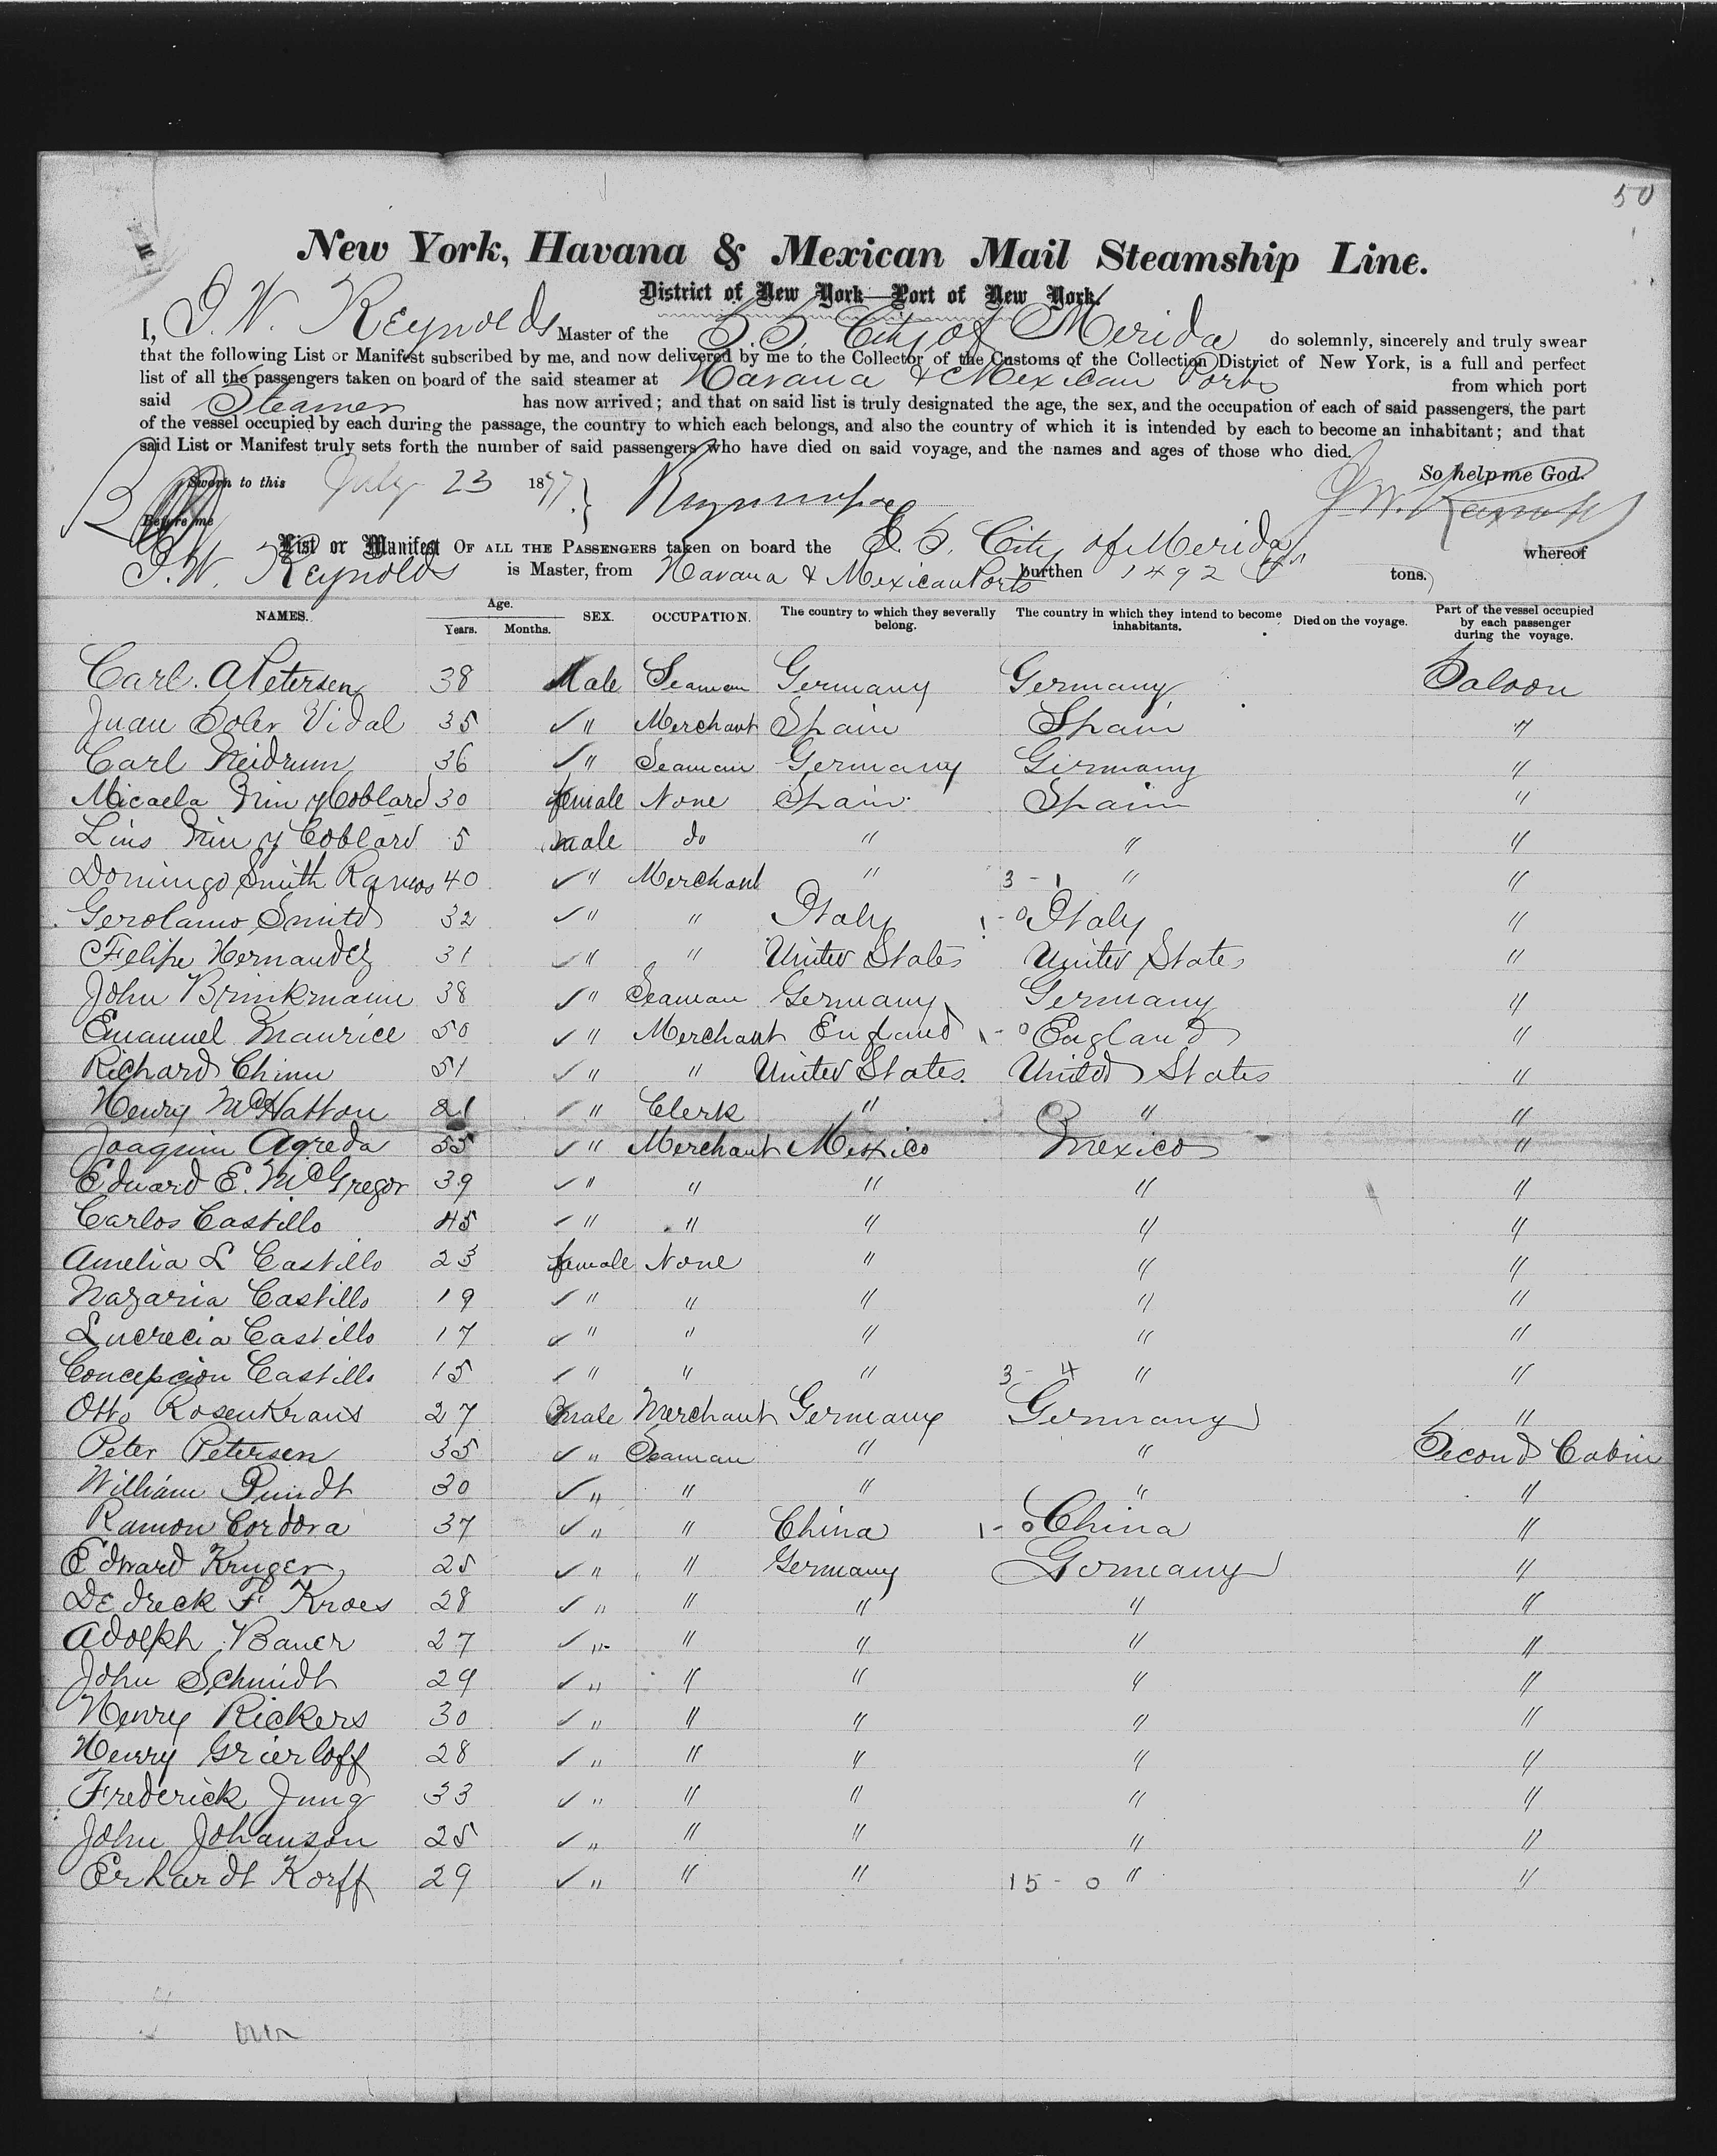 50
New York, Havana & Mexican Mail Steamship Line.
District of New York—Port of New York.
I, J. W. Reynolds Master of the S. S. City of Merida do solemnly, sincerely and truly swear
that the following List or Manifest subscribed by me, and now delivered by me to the Collector of the Customs of the Collection District of New York, is a full and perfect
list of all the passengers taken on board of the said steamer at Havana & Mexican Ports from which port
said Steamer has now arrived; and that on said list is truly designated the age, the sex, and the occupation of each of said passengers, the part
of the vessel occupied by each during the passage, the country to which each belongs, and also the country of which it is intended by each to become an inhabitant; and that
said List or Manifest truly sets forth the number of said passengers who have died on said voyage, and the names and ages of those who died.
So help me God.
Sworn to this July 23 1877.
Before me
List or Manifest OF ALL THE PASSENGERS taken on board the S. S. City of Merida whereof
J. W. Reynolds is Master, from Havana & Mexican Ports burthen 1492 tons.
NAMES. Age. Years. Months. SEX. OCCUPATION. The country to which they severally belong. The country in which they intend to become inhabitants. Died on the voyage. Part of the vessel occupied by each passenger during the voyage.
Carl. A Petersen 38 Male Seaman Germany Germany Saloon
Juan Soler Vidal 35 ✓ " Merchant Spain Spain "
Carl Neidrum 36 ✓ " Seaman Germany Germany "
Micaela y Coblard 30 female None Spain Spain "
y Coblard 5 male do " " "
Domingo Smith Ramos 40 ✓ " Merchant " 3 - 1 " "
Gerolamo Smith 32 ✓ " " Italy 1 - 0 Italy "
Felipe Hernandez 31 ✓ " " United States United States "
John Brinkmann 38 ✓ " Seaman Germany Germany "
Emanuel Maurice 50 ✓ " Merchant England 1 - 0 England "
Richard Chinn 51 ✓ " " United States. United States "
Henry McHatton 21 ✓ " Clerk " " "
Joaquin Agreda 55 ✓ " Merchant Mexico Mexico "
Eduard E. McGregor 39 ✓ " " " " "
Carlos Castillo 45 ✓ " " " " "
Amelia L Castillo 23 female None " " "
Nazaria Castillo 19 ✓ " " " " "
Lucrecia Castillo 17 ✓ " " " " "
Concepcion Castillo 15 ✓ " " " 3 - 4 " "
Otto Rosenkrans 27 male Merchant Germany Germany "
Peter Petersen 35 ✓ " Seaman " " Second Cabin
William Pundt 30 ✓ " " " " "
Ramon Cordova 37 ✓ " " China 1 - 0 China "
Edward Kruger 25 ✓ " " Germany Germany "
Dedreck F. Kroes 28 ✓ " " " " "
Adolph Bauer 27 ✓ " " " " "
John Schmidt 29 ✓ " " " " "
Henry Rickers 30 ✓ " " " " "
Henry Grierloff 28 ✓ " " " " "
Frederick Jung 33 ✓ " " " " "
John Johanson 25 ✓ " " " " "
Erhardt Korff 29 ✓ " " " 15 - 0 " "
over